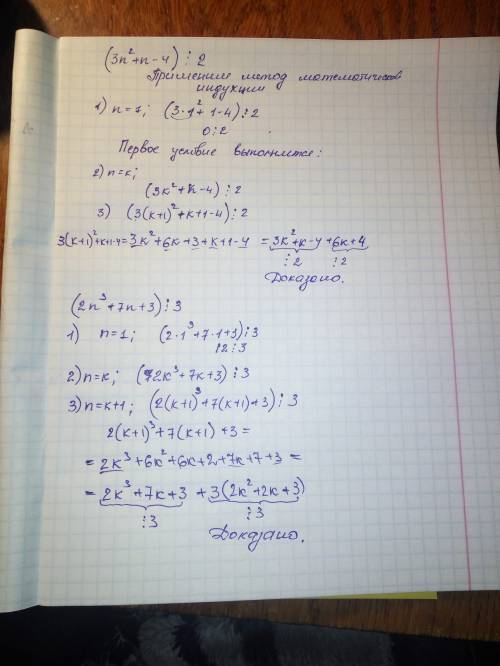 (3n²+n-4)⋮2
Применим метод математической
индукции
1) n=1; (3·1²+1-4)⋮2
0⋮2
Первое условие выполняется:
2) n=k;
(3k²+k-4)⋮2
3) (3(k+1)²+k+1-4)⋮2
3(k+1)²+k+1-4=3k²+6k+3+k+1-4 =3k²+k-4+6k+4
⋮2 ⋮2
Доказано.
(2n³+7n+3)⋮3
1) n=1; (2·1³+7·1+3)⋮3
12⋮3
2) n=k; (2k³+7k+3)⋮3
3) n=k+1; (2(k+1)³+7(k+1)+3)⋮3
2(k+1)³+7(k+1)+3=
=2k³+6k²+6k+2+7k+7+3=
=2k³+7k+3+3(2k²+2k+3)
⋮3 ⋮3
Доказано.